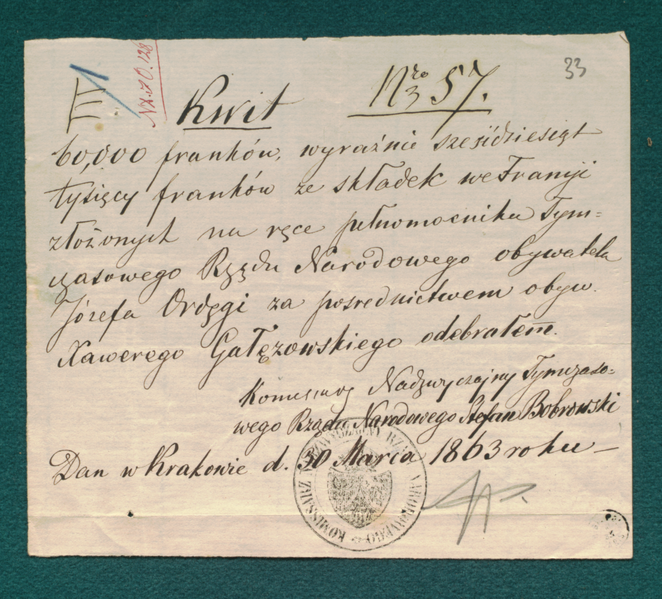 33
III
N.Z.J.O. 128
Kwit Nro 57.
60,000 franków, wyraźnie sześśdziesiąt
tysięcy franków ze składek we Francji
złożonych na ręce pełnomocnika Tym=
czasowego Rządu Narodowego obywatela
Józefa Ordęgi za pośrednictwem obyw.
Xawerego Gałęzowskiego odebrałem.
Komisarz Nadzwyczajny Tymczaso-
wego Rządu Narodowego Stefan Bobrowski
Dan w Krakowie d. 30 Marca 1863 roku —
KOMISSARZ NADZWYCZAJNY RZĄDU NARODOWEGO